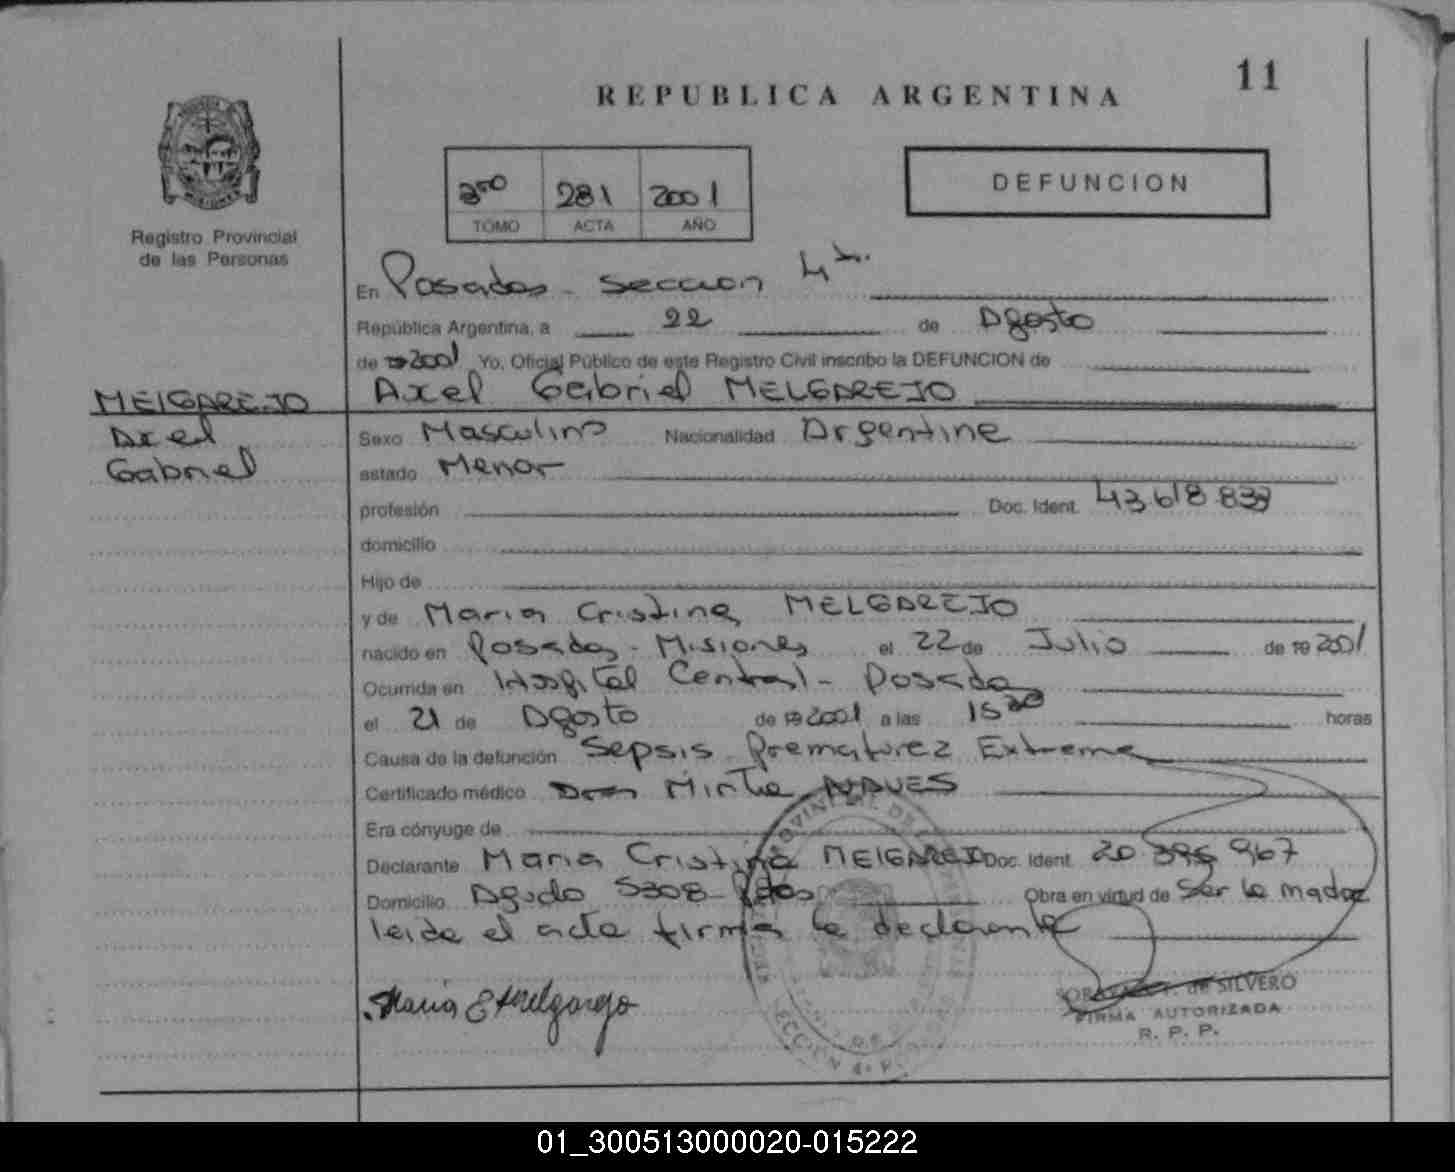 11
REPUBLICA ARGENTINA
DEFUNCION
281 2001
TOMO ACTA AÑO
Registro Provincial
de las Personas
En Posadas - Seccion 4ta.
República Argentina, a 22 de Agosto
de 2001 Yo, Oficial Público de este Registro Civil inscribo la DEFUNCION de
Axel Gabriel MELGAREJO
MELGAREJO
Axel
Gabriel
Sexo Masculino Nacionalidad Argentina
estado Menor
profesión Doc. Ident. 43618839
domicilio
Hijo de
y de Maria Cristina MELGAREJO
nacido en Posadas - Misiones el 22 de Julio de 19 2001
Ocurrida en Hospital Central - Posadas
el 21 de Agosto de 19 2001 a las 15 30 horas
Causa de la defunción Sepsis Prematurez Extrema
Certificado médico Dra Mirta
Era cónyuge de
Declarante Maria Cristina MELGAREJO Doc. Ident. 20 395 967
Domicilio Agudo 5308 Pdas Obra en virtud de Ser la madre
leida el acta firma la declarante
Maria Melgarejo
de SILVERO
FIRMA AUTORIZADA
R. P. P.
01_300513000020-015222